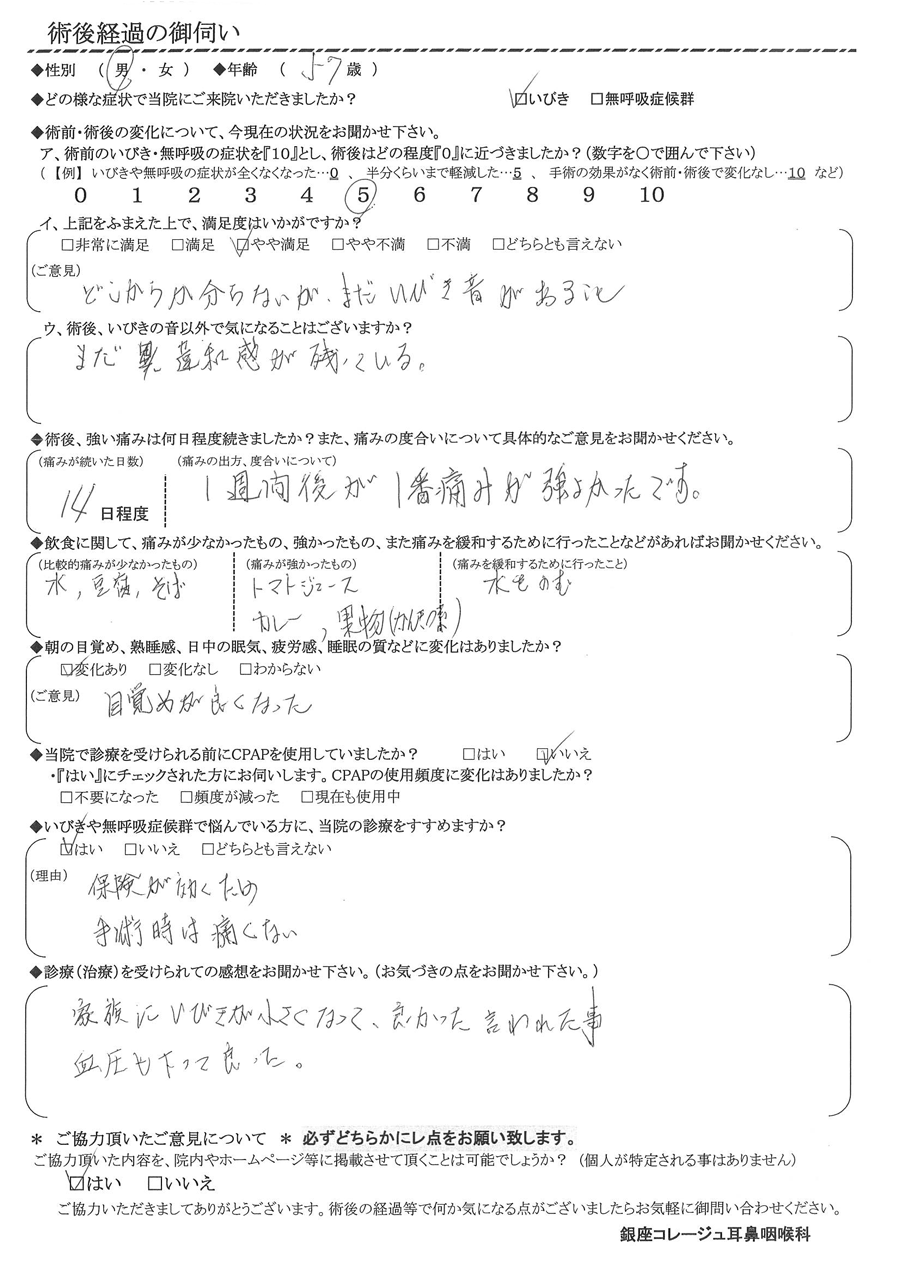 術後経過の御伺い
◆性別 （ 男 ・ 女 ） ◆年齢 （ 57 歳 ）
◆どの様な症状で当院にご来院いただきましたか？ ☑いびき □無呼吸症候群
◆術前・術後の変化について、今現在の状況をお聞かせ下さい。
ア、術前のいびき・無呼吸の症状を『10』とし、術後はどの程度『0』に近づきましたか？（数字を○で囲んで下さい）
（【例】 いびきや無呼吸の症状が全くなくなった…0 、 半分くらいまで軽減した…5 、 手術の効果がなく術前・術後で変化なし…10 など）
0 1 2 3 4 5 6 7 8 9 10
イ、上記をふまえた上で、満足度はいかがですか？
□非常に満足 □満足 ☑やや満足 □やや不満 □不満 □どちらとも言えない
（ご意見）
どこからか分らないが、まだいびき音があること
ウ、術後、いびきの音以外で気になることはございますか？
まだ 違和感が残っている。
◆術後、強い痛みは何日程度続きましたか？また、痛みの度合いについて具体的なご意見をお聞かせください。
（痛みが続いた日数） （痛みの出方、度合いについて）
14 日程度 1週間後が1番痛みが強よかったです。
◆飲食に関して、痛みが少なかったもの、強かったもの、また痛みを緩和するために行ったことなどがあればお聞かせください。
（比較的痛みが少なかったもの） （痛みが強かったもの） （痛みを緩和するために行ったこと）
水，豆腐，そば トマトジュース 水をのむ
カレー，果物（かんきつ系）
◆朝の目覚め、熟睡感、日中の眠気、疲労感、睡眠の質などに変化はありましたか？
☑変化あり □変化なし □わからない
（ご意見） 目覚めが良くなった
◆当院で診療を受けられる前にCPAPを使用していましたか？ □はい ☑いいえ
・『はい』にチェックされた方にお伺いします。CPAPの使用頻度に変化はありましたか？
□不要になった □頻度が減った □現在も使用中
◆いびきや無呼吸症候群で悩んでいる方に、当院の診療をすすめますか？
☑はい □いいえ □どちらとも言えない
（理由） 保険が効くため
手術時は痛くない
◆診療（治療）を受けられての感想をお聞かせ下さい。（お気づきの点をお聞かせ下さい。）
家族にいびきが小さくなって、良かった言われた事
血圧も下って良った。
＊ ご協力頂いたご意見について ＊ 必ずどちらかにレ点をお願い致します。
ご協力頂いた内容を、院内やホームページ等に掲載させて頂くことは可能でしょうか？ （個人が特定される事はありません）
☑はい □いいえ
ご協力いただきましてありがとうございます。術後の経過等で何か気になる点がございましたらお気軽に御問い合わせください。
銀座コレージュ耳鼻咽喉科